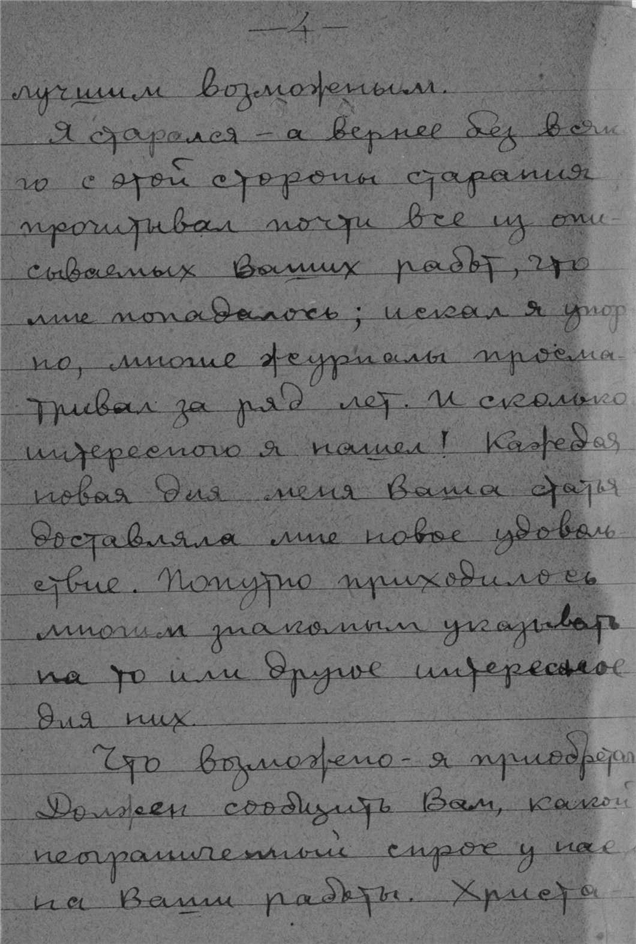 —4—
лучшим возможеным.
Я старался – а вернее без всяк
го с этой стороны старания
прочитывал почти все из опи-
сываемых Ваших работ, что
мне попадалось; искал я упор
но, многие журналы просма-
тривал за ряд лет. И сколько
интересного я нашел! Каждая
новая для меня Ваша статья
доставляла мне новое удоволь
ствие. Попутно приходилось
многим знакомым указывать
на то или другое интересное
для них.
Что возможено – я приобретал
Должен сообщить Вам, какой
неограниченный спрос у нас
на Ваши работы. Христа-